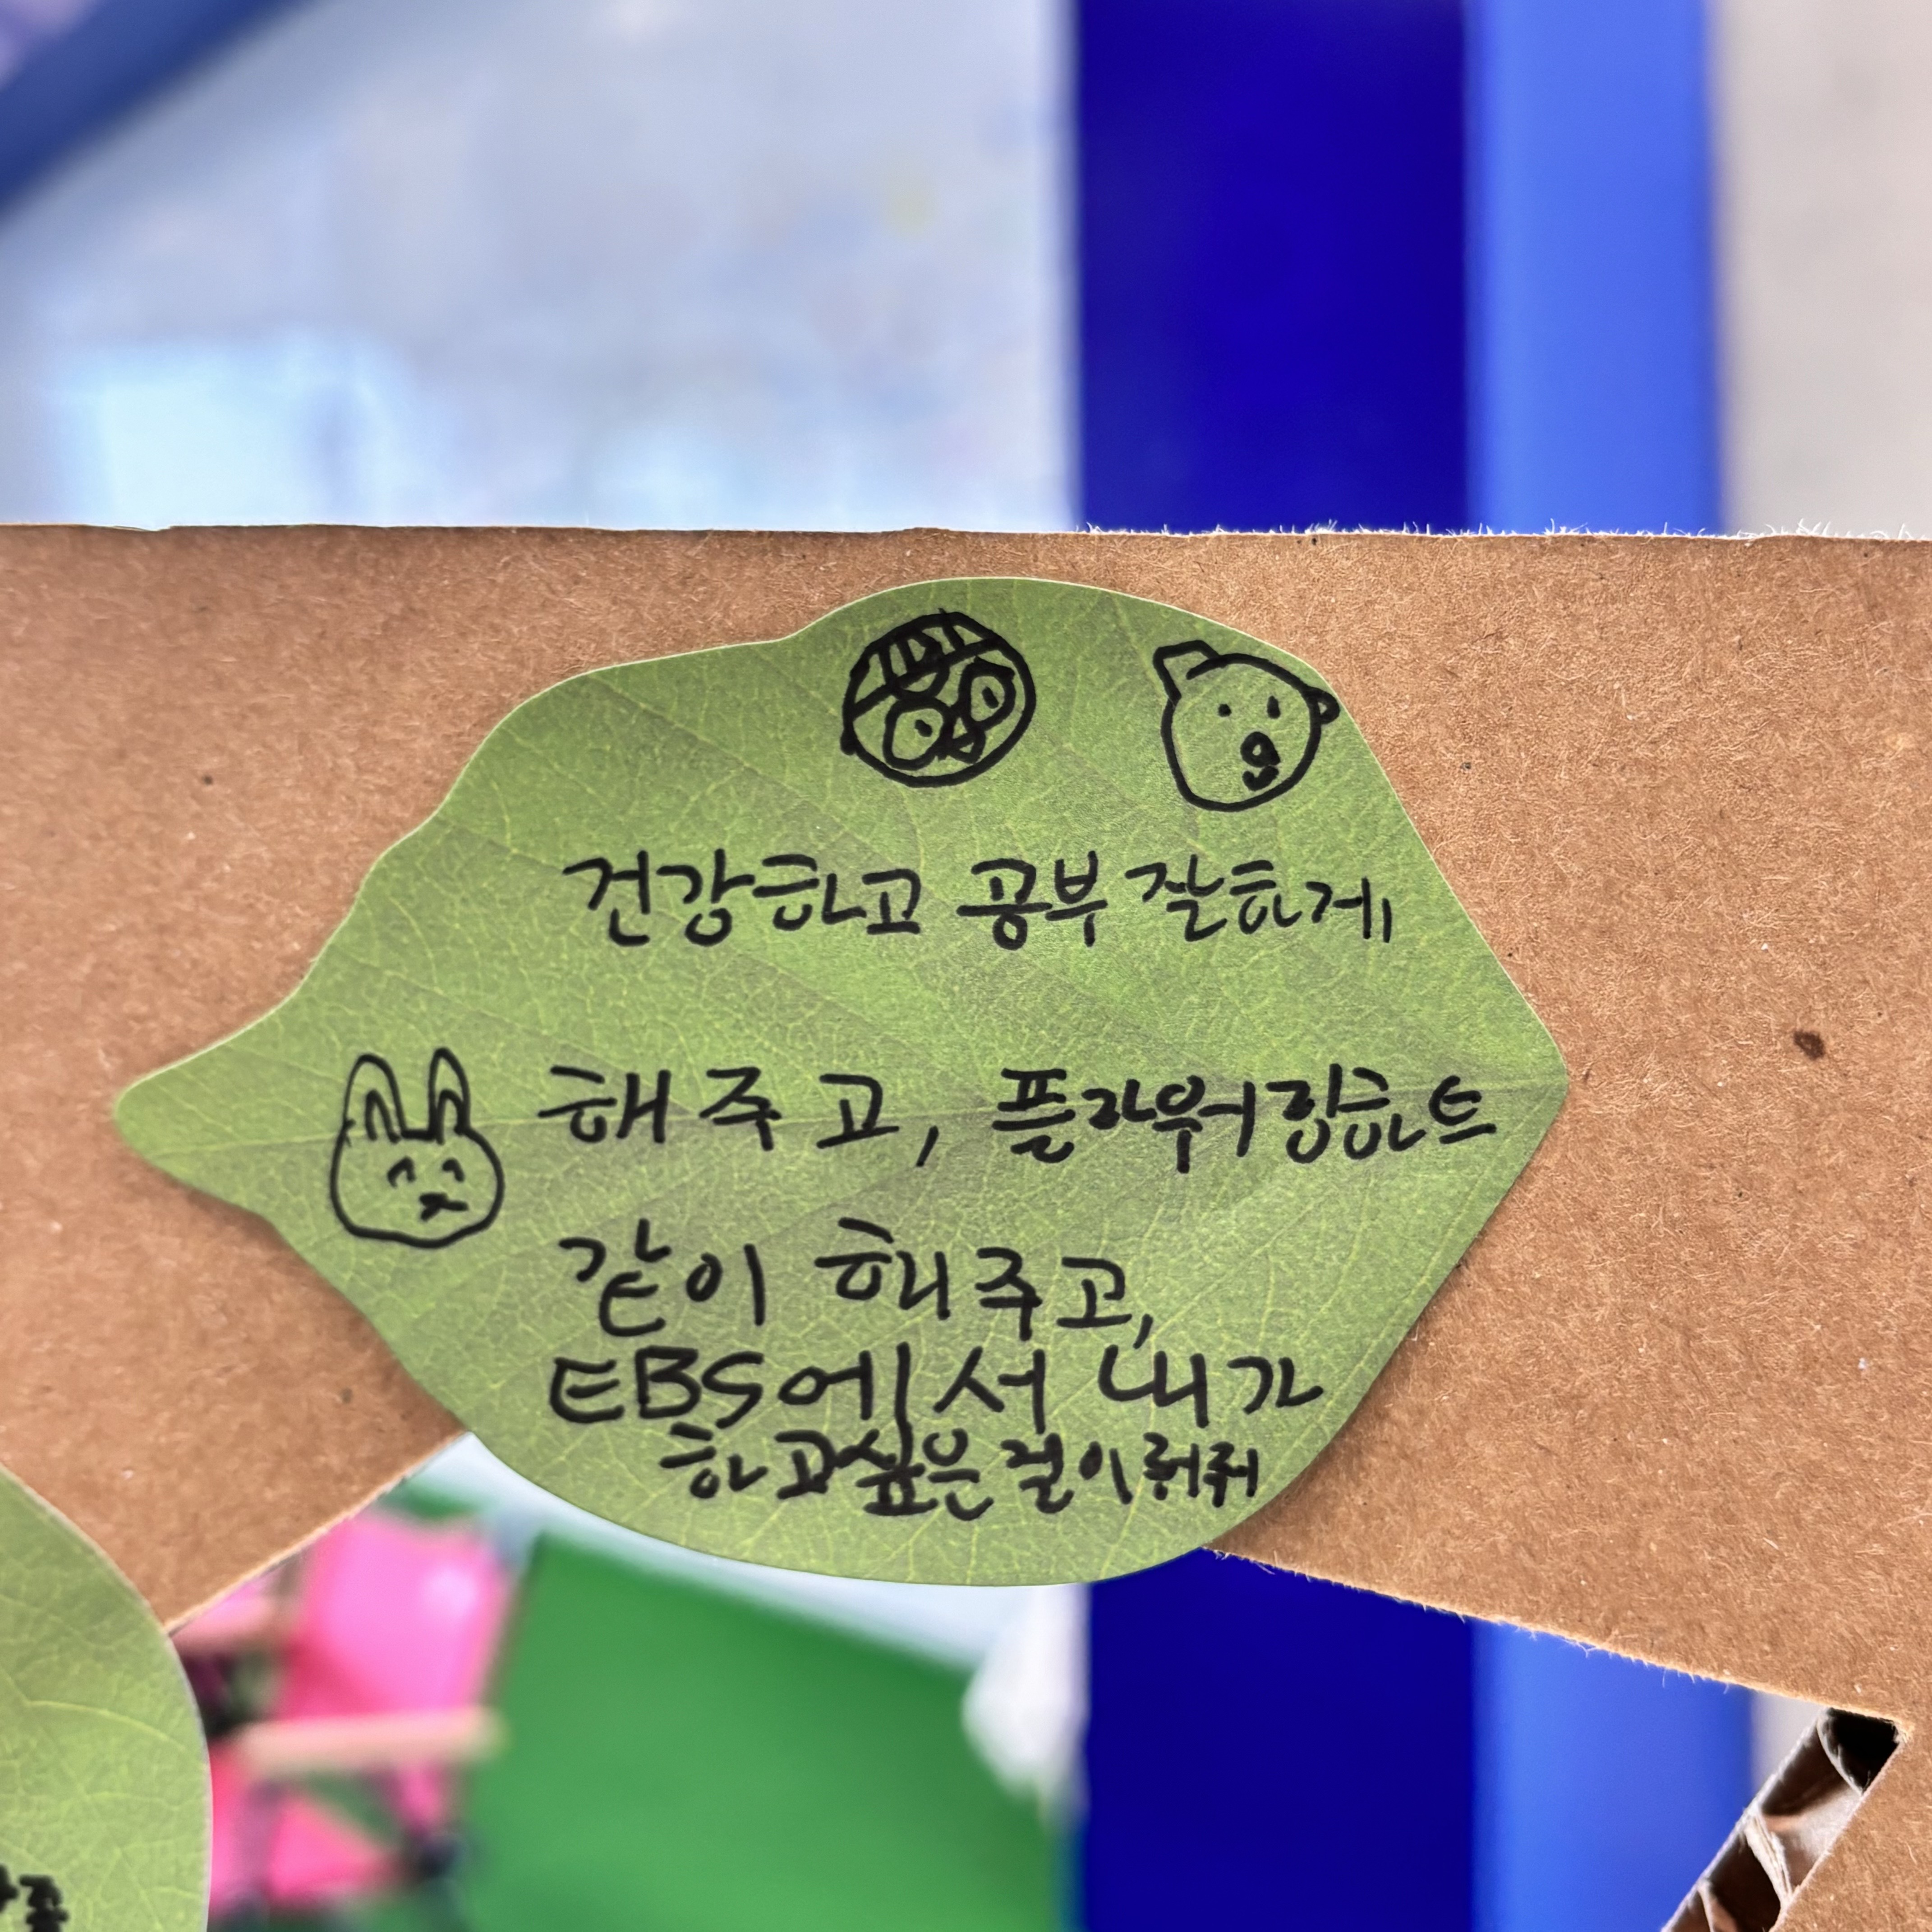 건강하고 공부 잘하게
해주고, 플라워링하트
같이 해주고,
EBS에서 내가
하고싶은 걸 이뤄줘